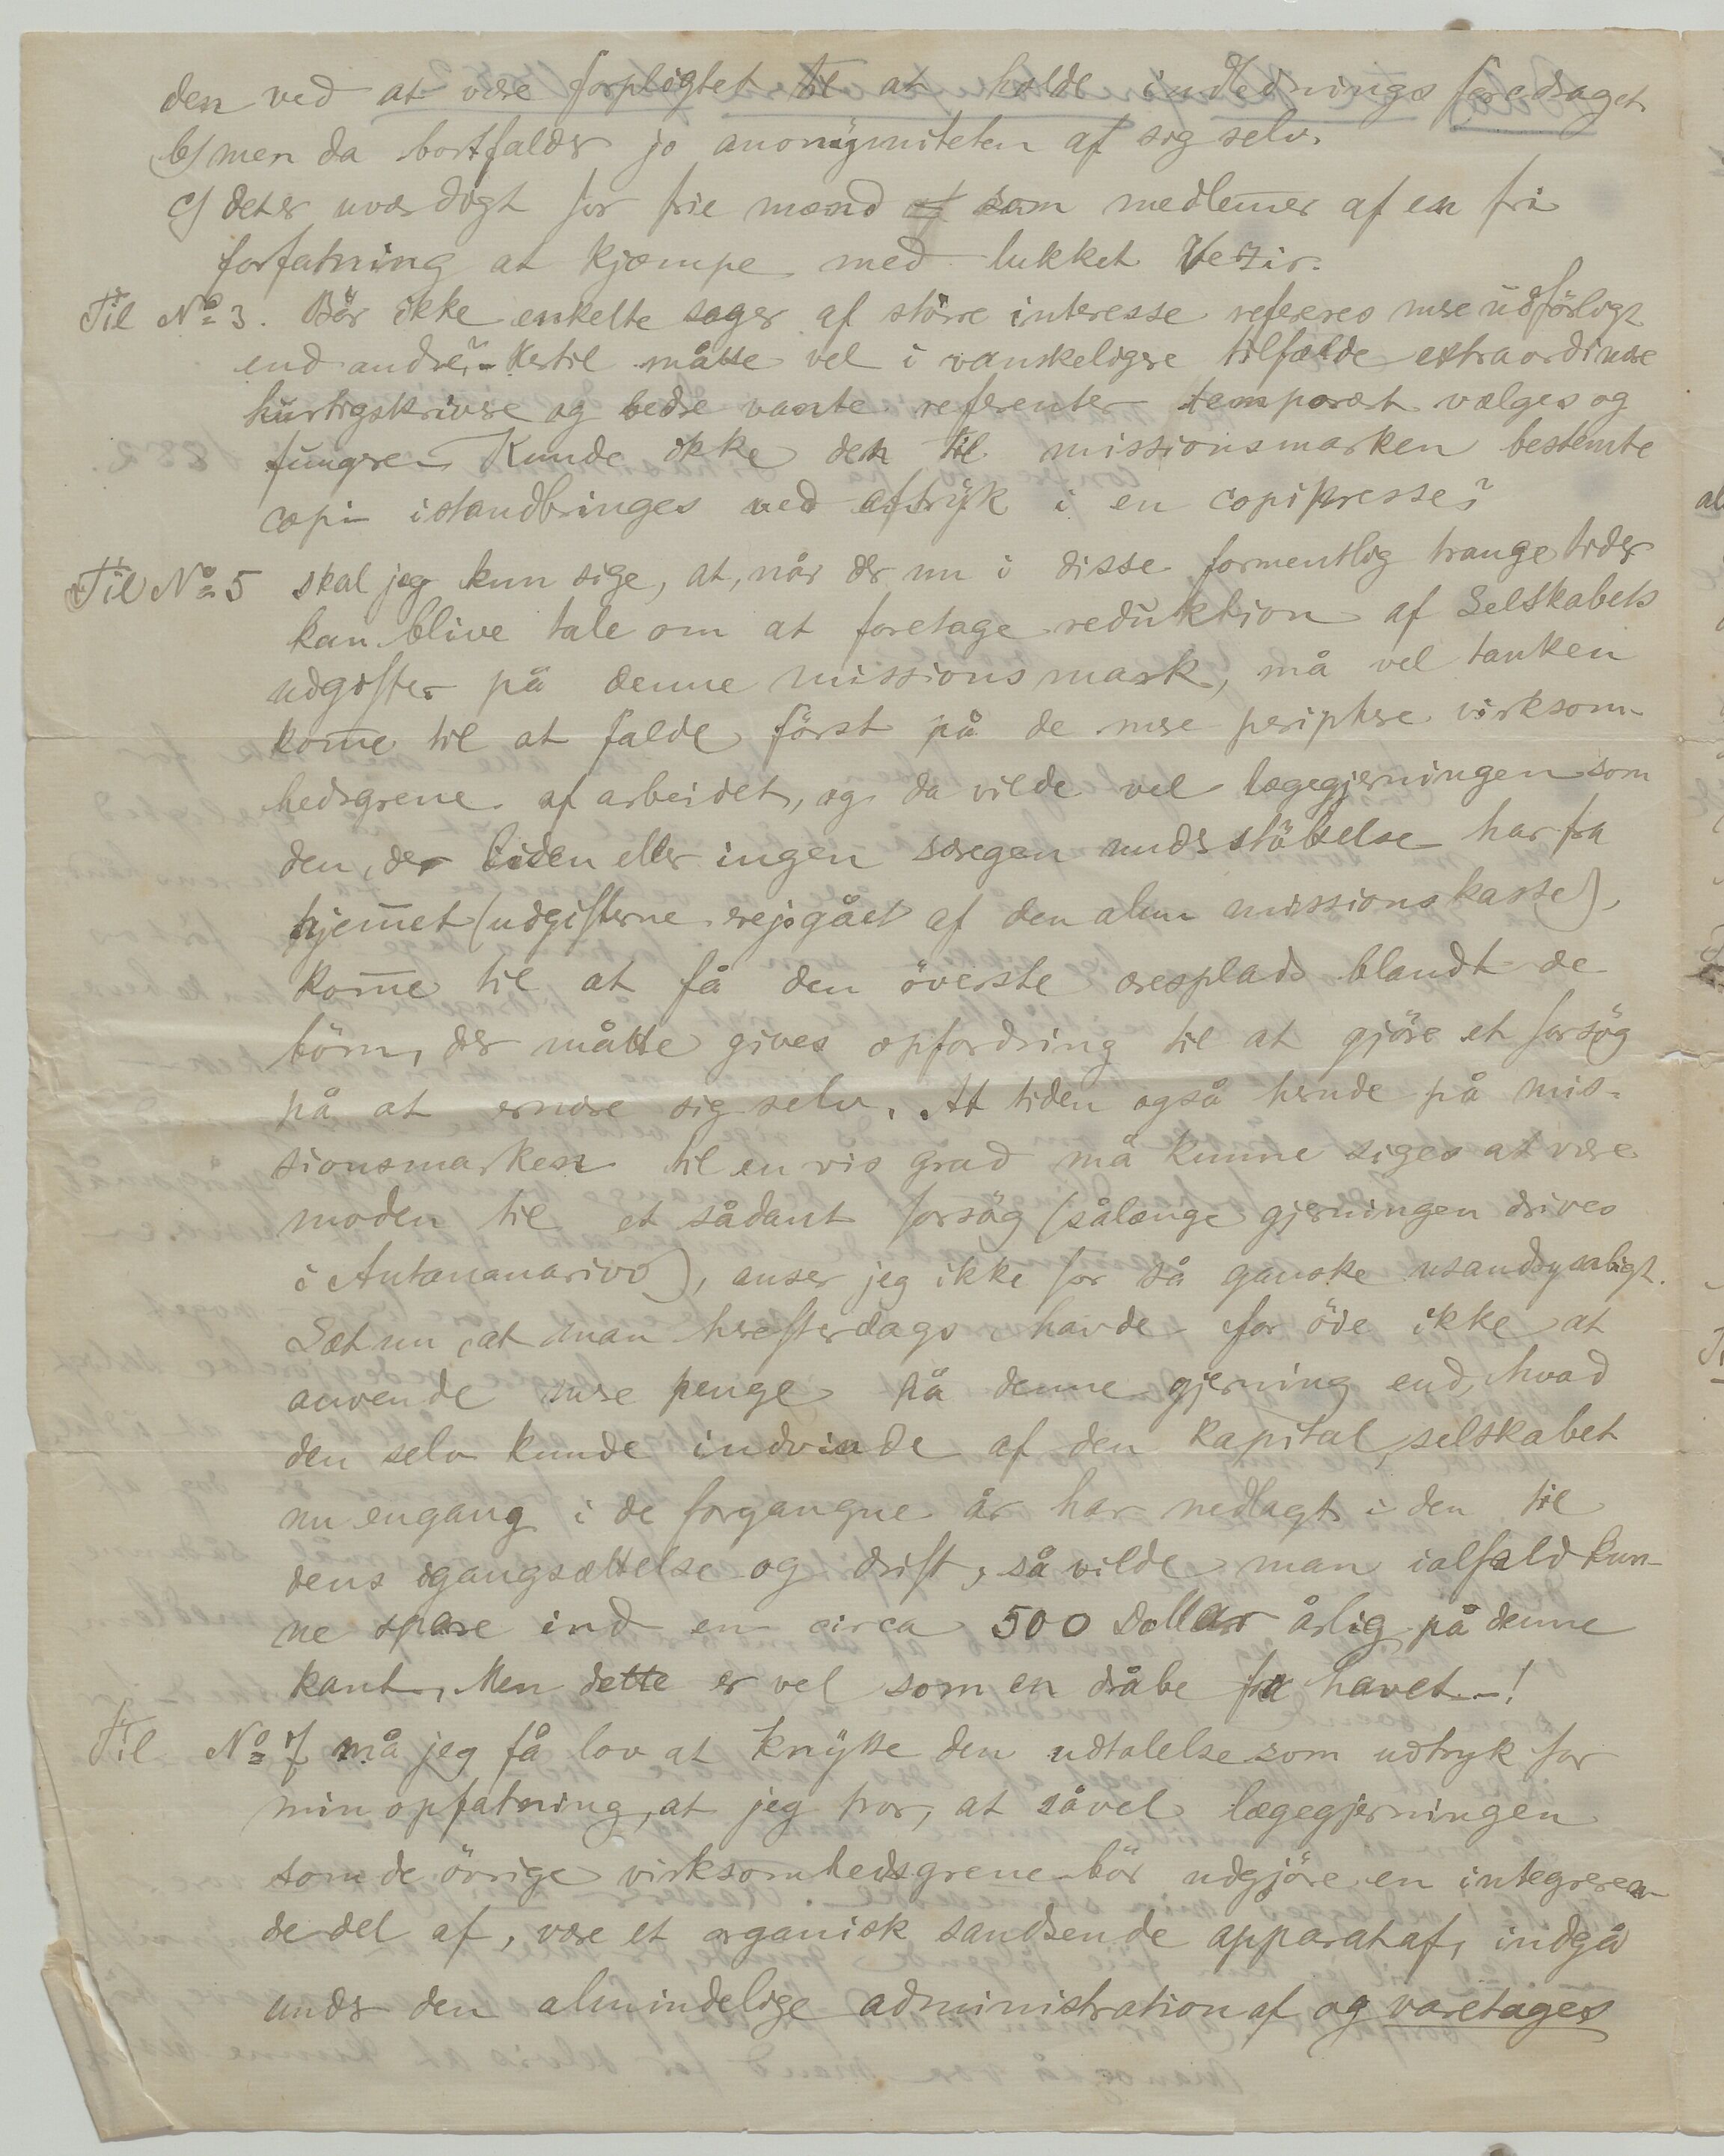 den ved at være forpligtet til at holde indlednings foredraget
b/ men da bortfalder jo anonymiteten af sig selv.
c/ det er uværdigt for frie mænd som medlemer af en fri
forfatning at kjæmpe med lukket Vezir.
Til No 3. Bör ikke enkelte sager af större interesse refereres mere udförligt
end andre? - Hertil måtte vel i vanskeligere tilfælde extraordinære
hurtigskrivere og bedre vante referenter temporært vælges og
fungere. Kunde ikke den til missionsmarken bestemte
copi istandbringes ved aftryk i en copipresse?
Til No 5 skal jeg kun sige, at, når der nu i disse formentlig trange tider
kan blive tale om at foretage reduktion af Selskabets
udgifter på denne missionsmark, må vel tanken
kome til at falde först på de mere periphere virksom-
hedsgrene af arbeidet, og da vilde vel lægegjerningen som
den, der liden eller ingen særegen understöttelse har fra
hjemet (udgifterne erejo gået af den alm missionskasse),
kome til at få den överste æresplads blandt de
börn, der måtte gives opfordring til at gjöre et forsög
på at ernære sig selv. At tiden også herude på mis-
sionsmarken til en vis grad må kunne siges at være
moden til et sådant forsög (sålænge gjerningen drives
i Antananarivo), anser jeg ikke for så ganske usandsynligt.
Sæt nu, at man herefterdags havde for öie ikke at
anvende mere penge på denne gjerning end, hvad
den selv kunde indvinde af den kapital, selskabet
nu engang i de forgangne år har nedlagt i den til
dens igangsættelse og drift, så vilde man ialfald kun-
ne spare ind en circa 500 Dollar årlig på denne
kant. Men dette er vel som en dråbe fra havet -!
Til No 7 må jeg få lov at knytte den udtalelse som udtryk for
min opfatning, at jeg tror, at såvel lægegjerningen
som de övrige virksomhedsgrene bör udgjöre en integreren-
de del af, være et organisk sandsende apparat af, indgå
under den almindelige administration af og varetages